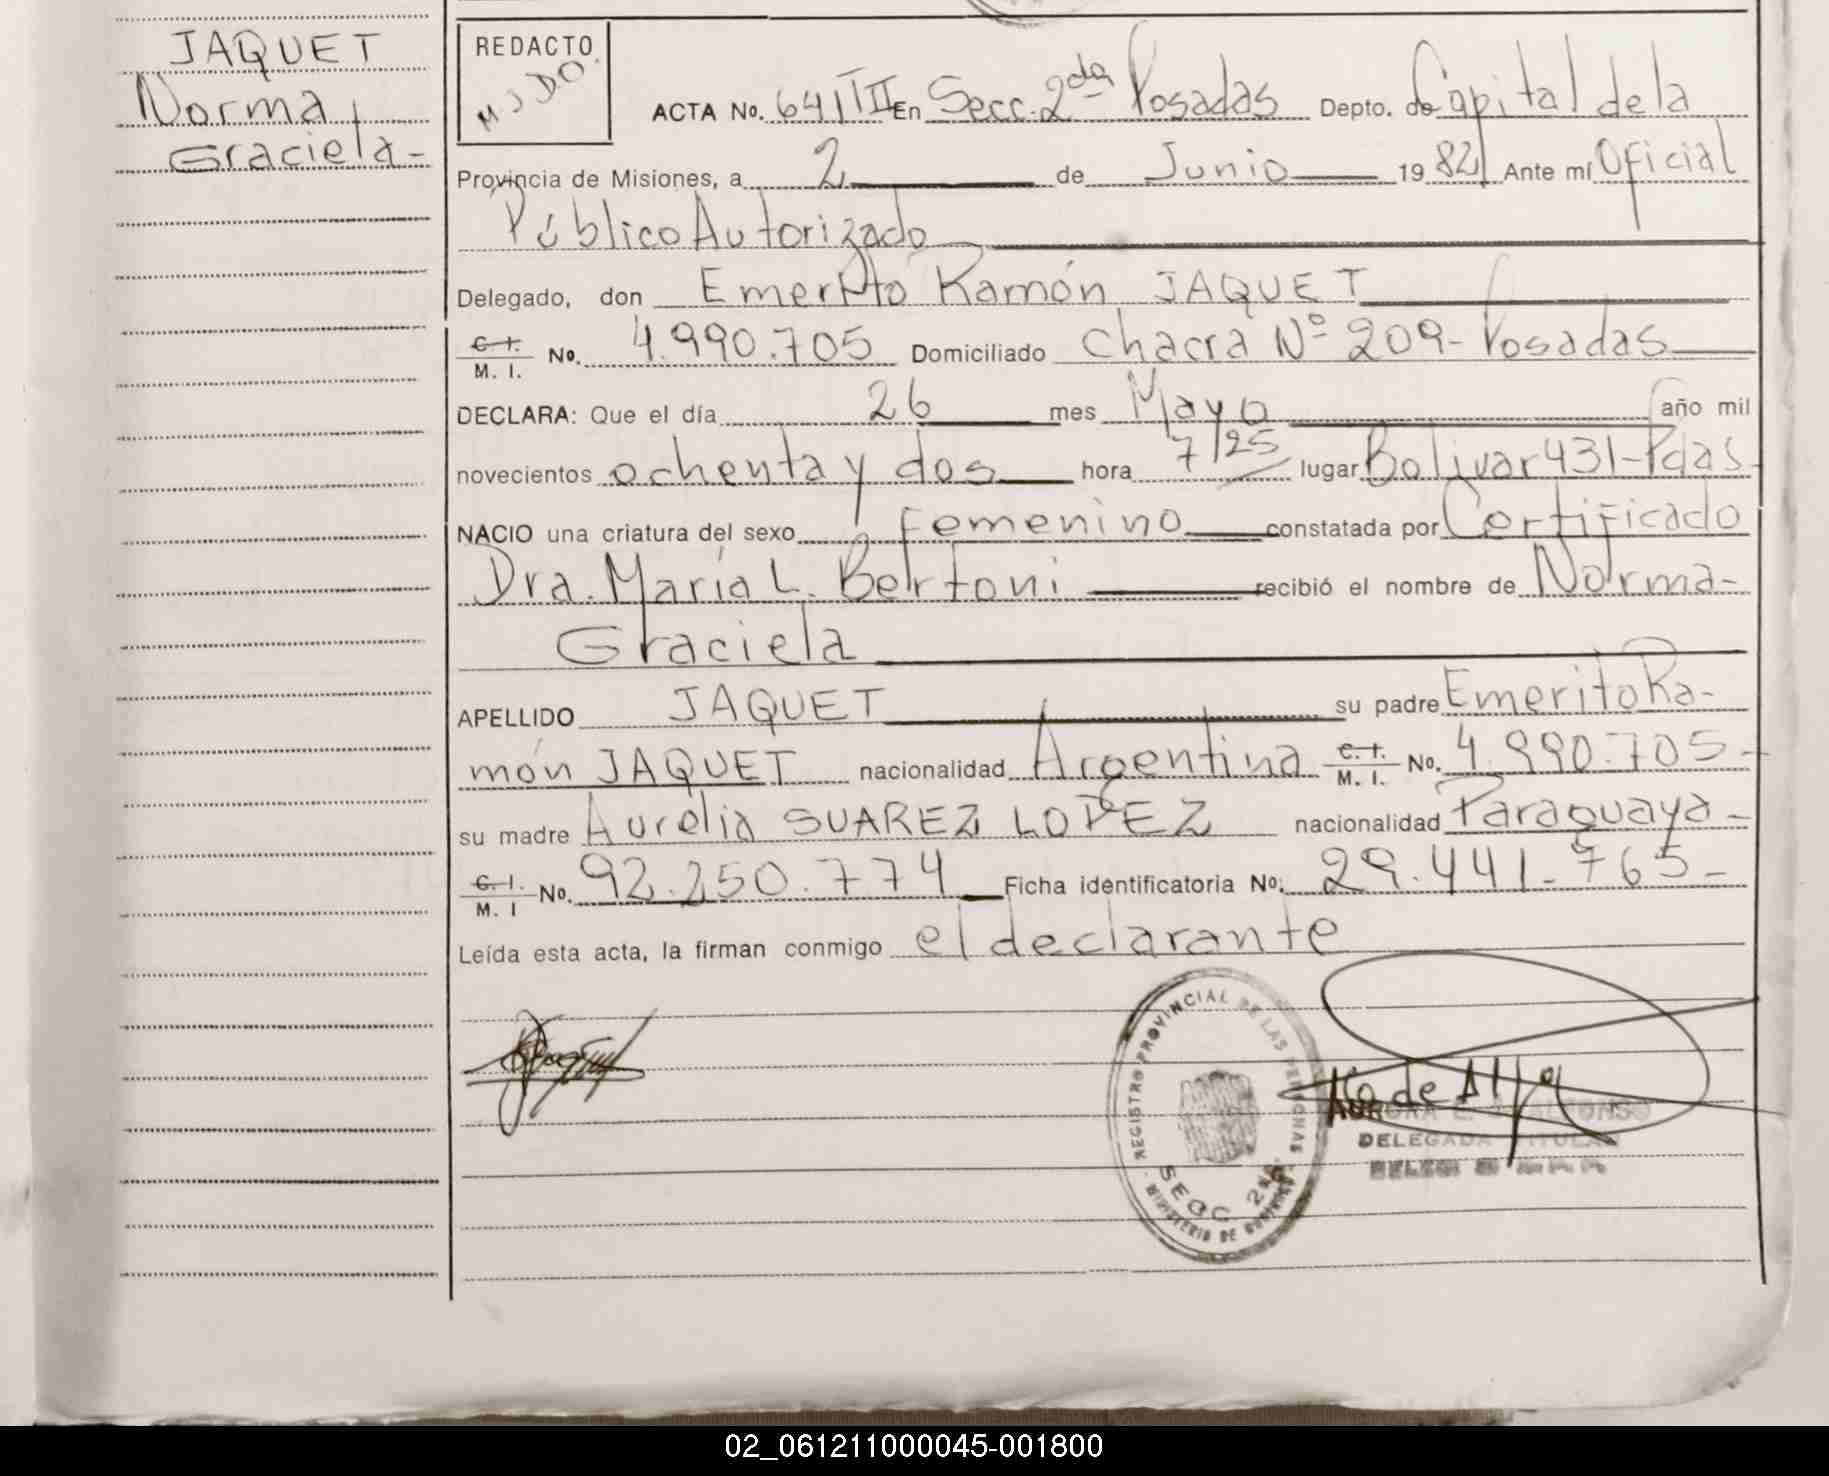 JAQUET
Norma
Graciela-
REDACTO
M J DO.
ACTA No. 641 TII En Secc. 2da Posadas Depto. de Capital de la
Provincia de Misiones, a 2 de Junio 1982 Ante mí Oficial
Público Autorizado
Delegado, don Emerito Ramón JAQUET
C. I. M. I. No. 4.990.705 Domiciliado Chacra Nº 209- Posadas
DECLARA: Que el día 26 mes Mayo año mil
novecientos ochenta y dos hora 7/25 lugar Bolivar 431-Pdas-
NACIO una criatura del sexo femenino constatada por Certificado
Dra. María L. Bertoni recibió el nombre de Norma-
Graciela
APELLIDO JAQUET su padre Emerito Ra-
món JAQUET nacionalidad Argentina C. I. M. I. No. 4.990.705-
su madre Aurelia SUAREZ LOPEZ nacionalidad Paraguaya-
C. I. M. I No. 92.250.774 Ficha identificatoria No: 29.441.765-
Leída esta acta, la firman conmigo el declarante
REGISTRO PROVINCIAL DE LAS PERSONAS
SECC 2da
MINISTERIO DE GOBIERNO
DELEGADA TITULAR
02_061211000045-001800